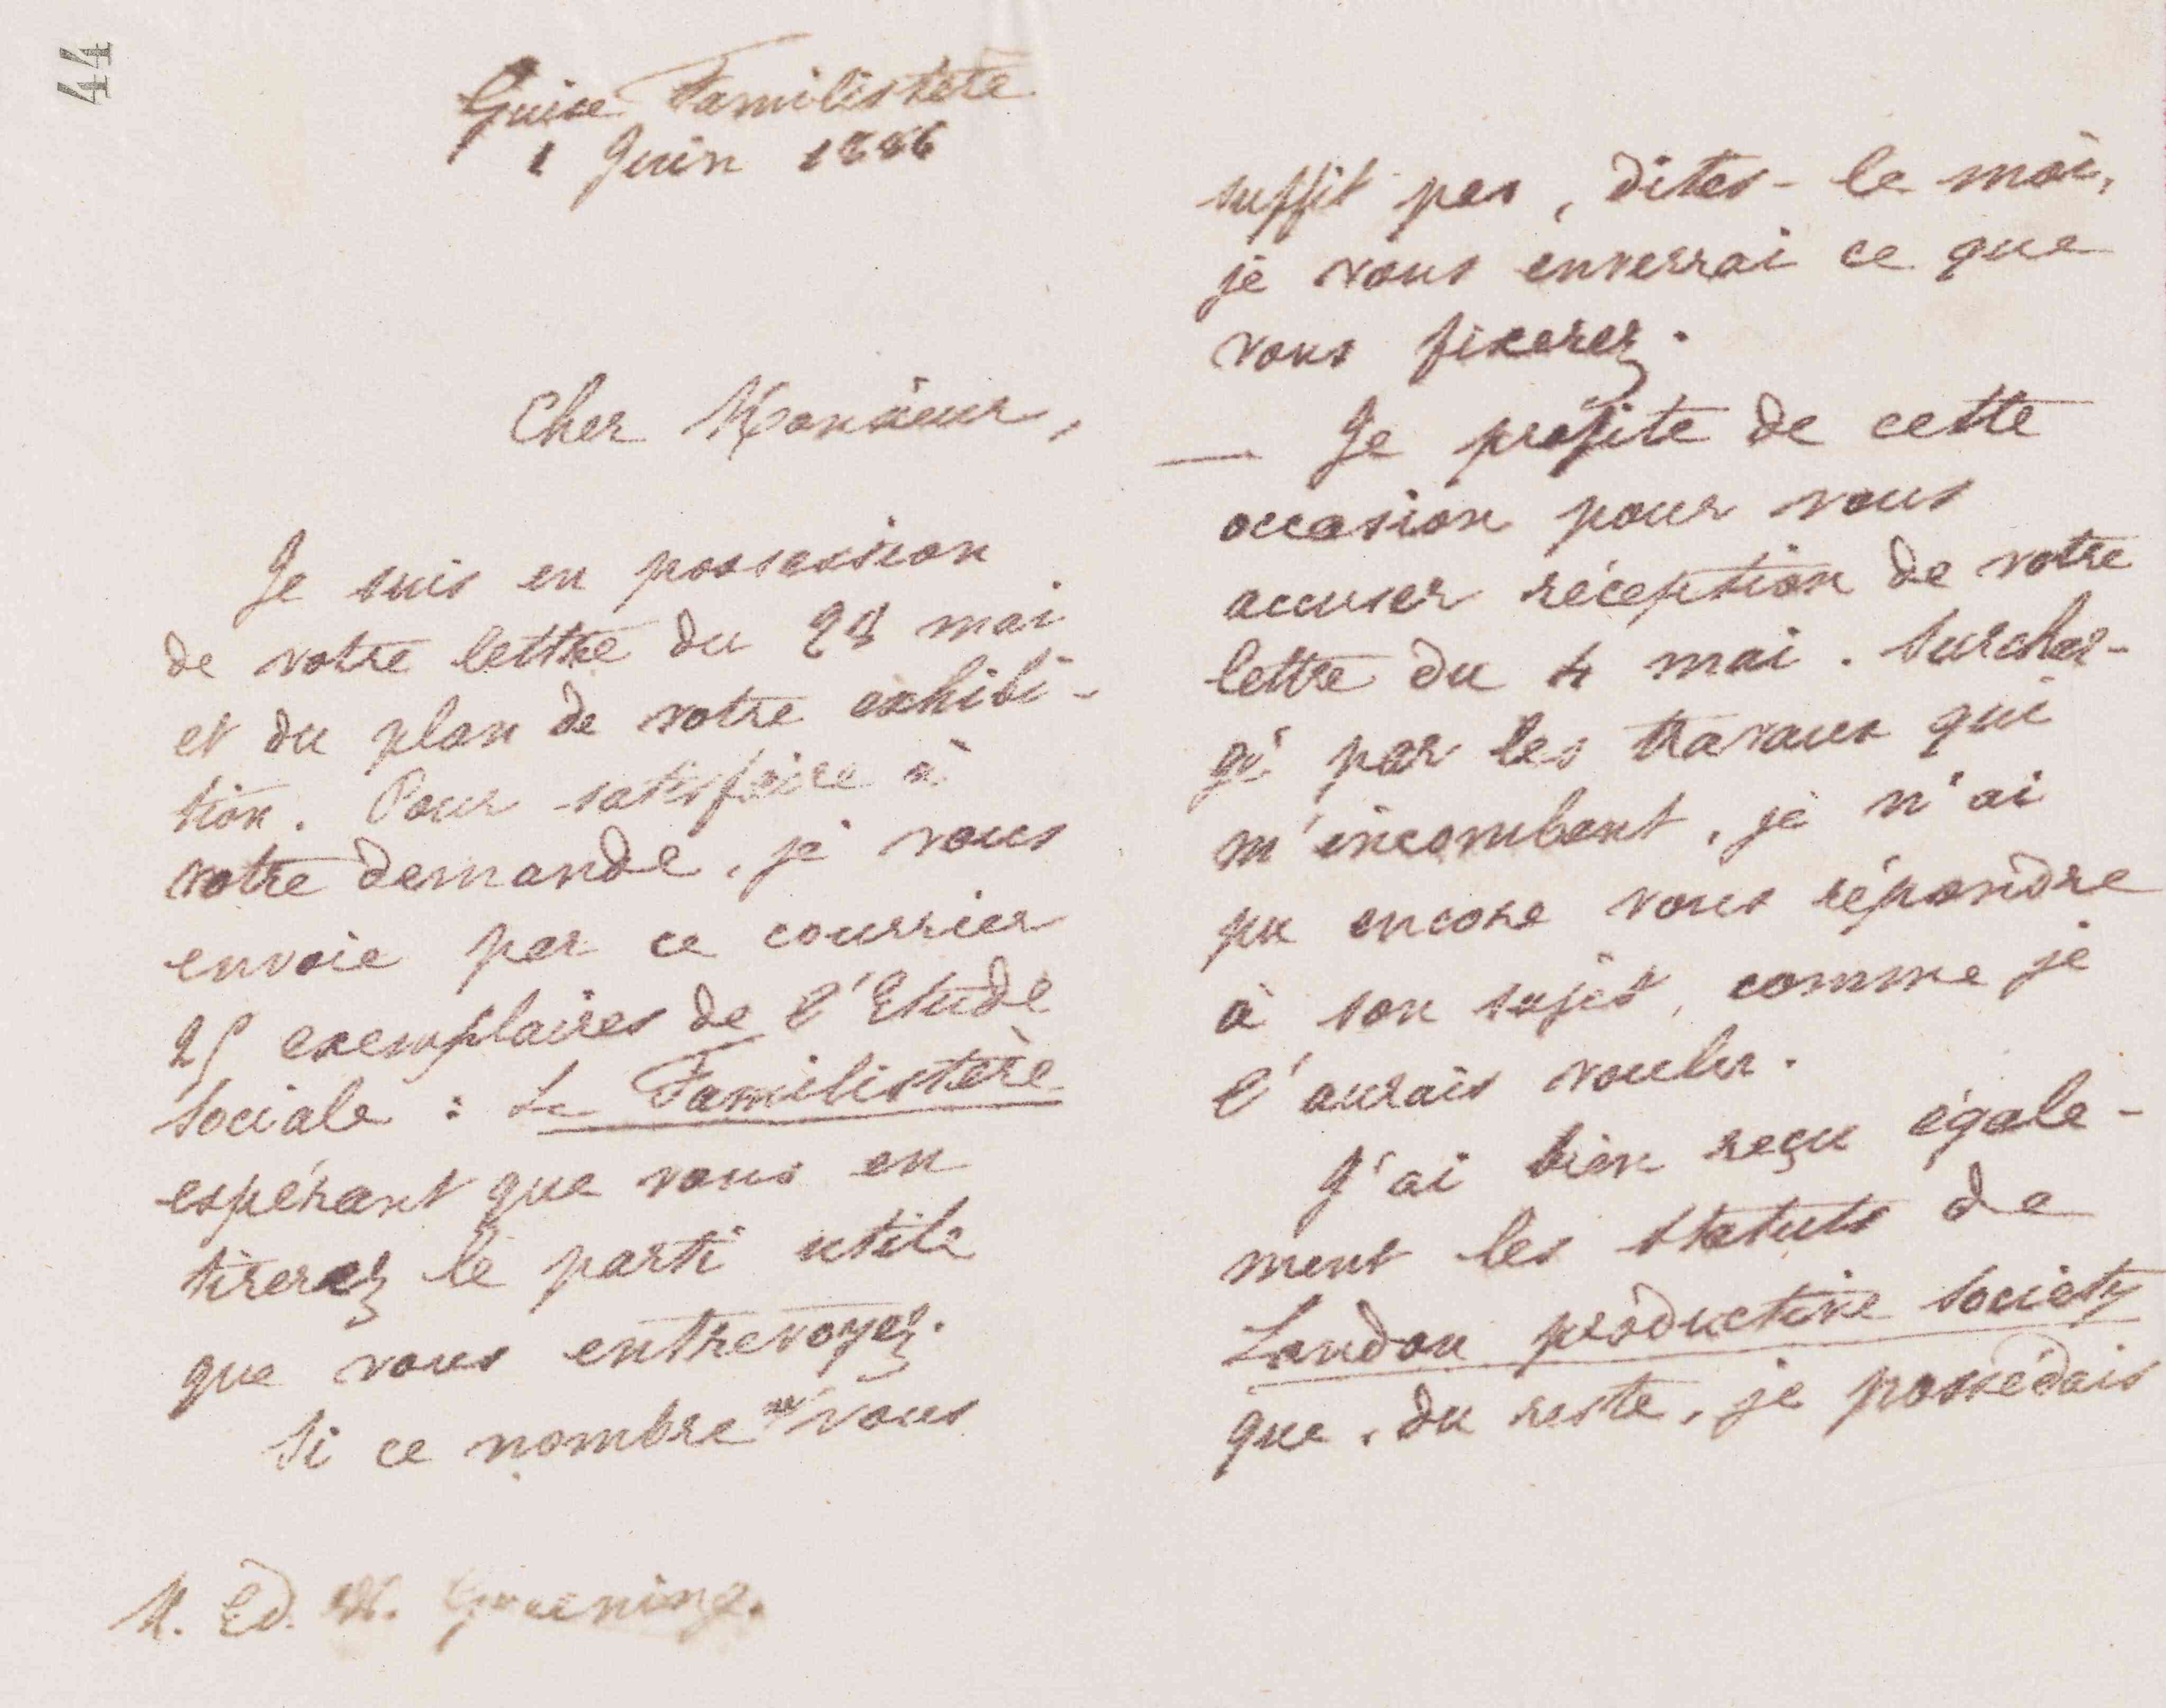 44
Guise Familistère
1 Juin 1886
Cher Monsieur,
Je suis en possession
de votre lettre du 28 mai
et du plan de votre exhibi-
tion. Pour satisfaire à
votre demande, je vous
envoie par ce courrier
25 exemplaires de l'Etude
Sociale : Le Familistère
espérant que vous en
tirerez le parti utile
que vous entrevoyez.
Si ce nombre ne vous
M. Ed. W. Greening.
suffit pas, dites-le moi,
je vous enverrai ce que
vous fixerez.
— Je profite de cette
occasion pour vous
accuser réception de votre
lettre du 4 mai. Surchar-
gé par les travaux qui
m'incombent, je n'ai
pu encore vous répondre
à son sujet, comme je
l'aurais voulu.
J'ai bien reçu égale-
ment les statuts de
London productive Society
que, du reste, je possédais